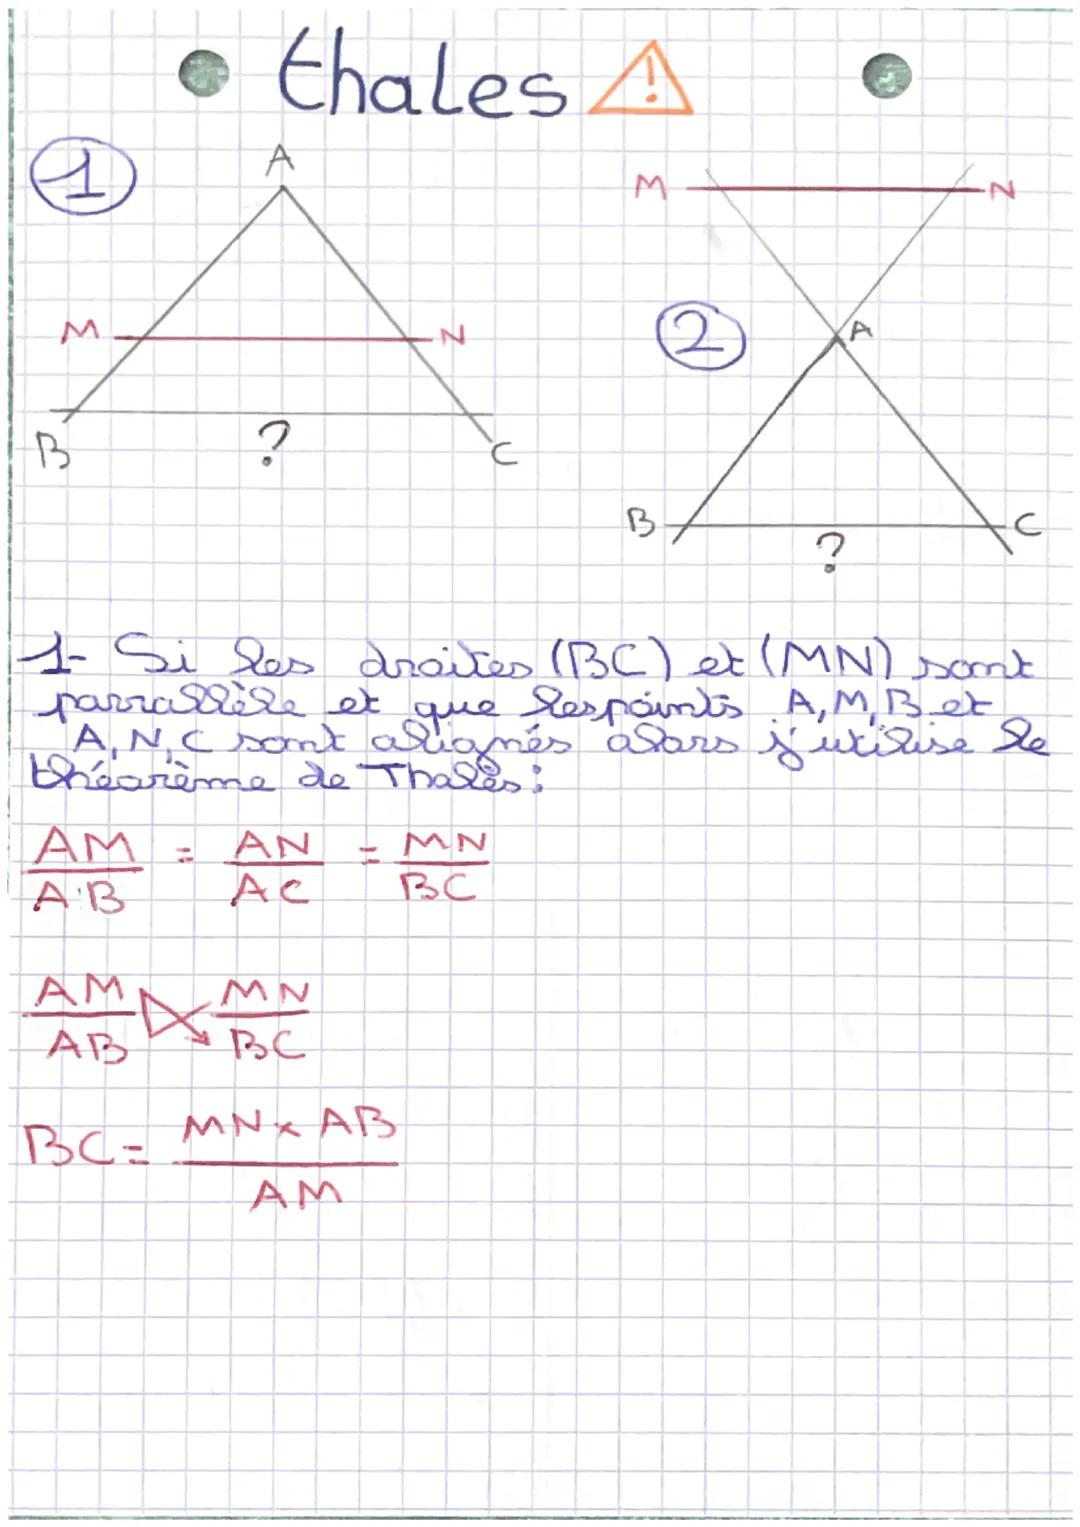 thales
!
1
A
M
N
B
?
C
M
N
2
A
B
C
?
1- Si les droites (BC) et (MN) sont
parrallèle et que les points A, M, B et
A, N, C sont alignés alors j'utilise le
théorème de Thalès :
AM/AB = AN/AC = MN/BC
AM/AB MN/BC
BC = MN x AB / AM